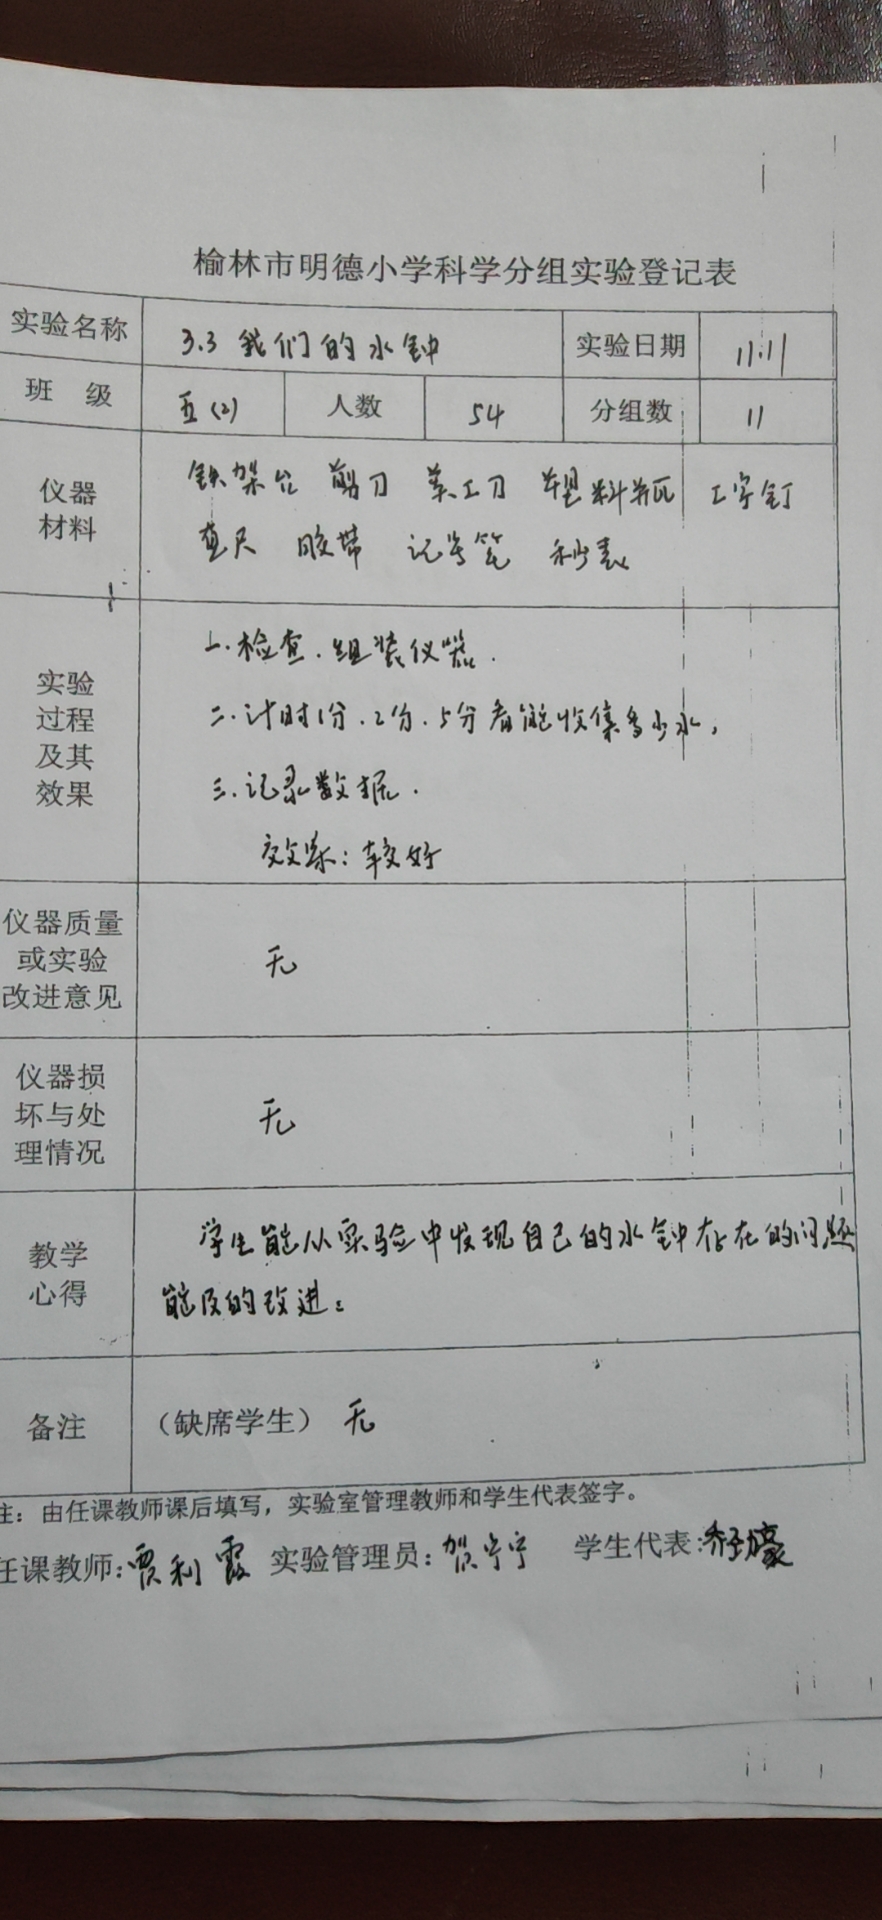 榆林市明德小学科学分组实验登记表
实验名称 3.3 我们的水钟 实验日期 11.11
班 级 五(2) 人数 54 分组数 11
仪器材料
铁架台 剪刀 美工刀 塑料瓶 工字钉
直尺 胶带 记号笔 秒表
实验过程及其效果
一.检查.组装仪器.
二.计时1分.2分.5分看能收集多少水,
三.记录数据.
效果:较好
仪器质量或实验改进意见
无
仪器损坏与处理情况
无
教学心得
学生能从实验中发现自己的水钟存在的问题
能及的改进。
备注 (缺席学生) 无
注:由任课教师课后填写,实验室管理教师和学生代表签字。
任课教师:贾利霞 实验管理员:贺宁宁 学生代表: